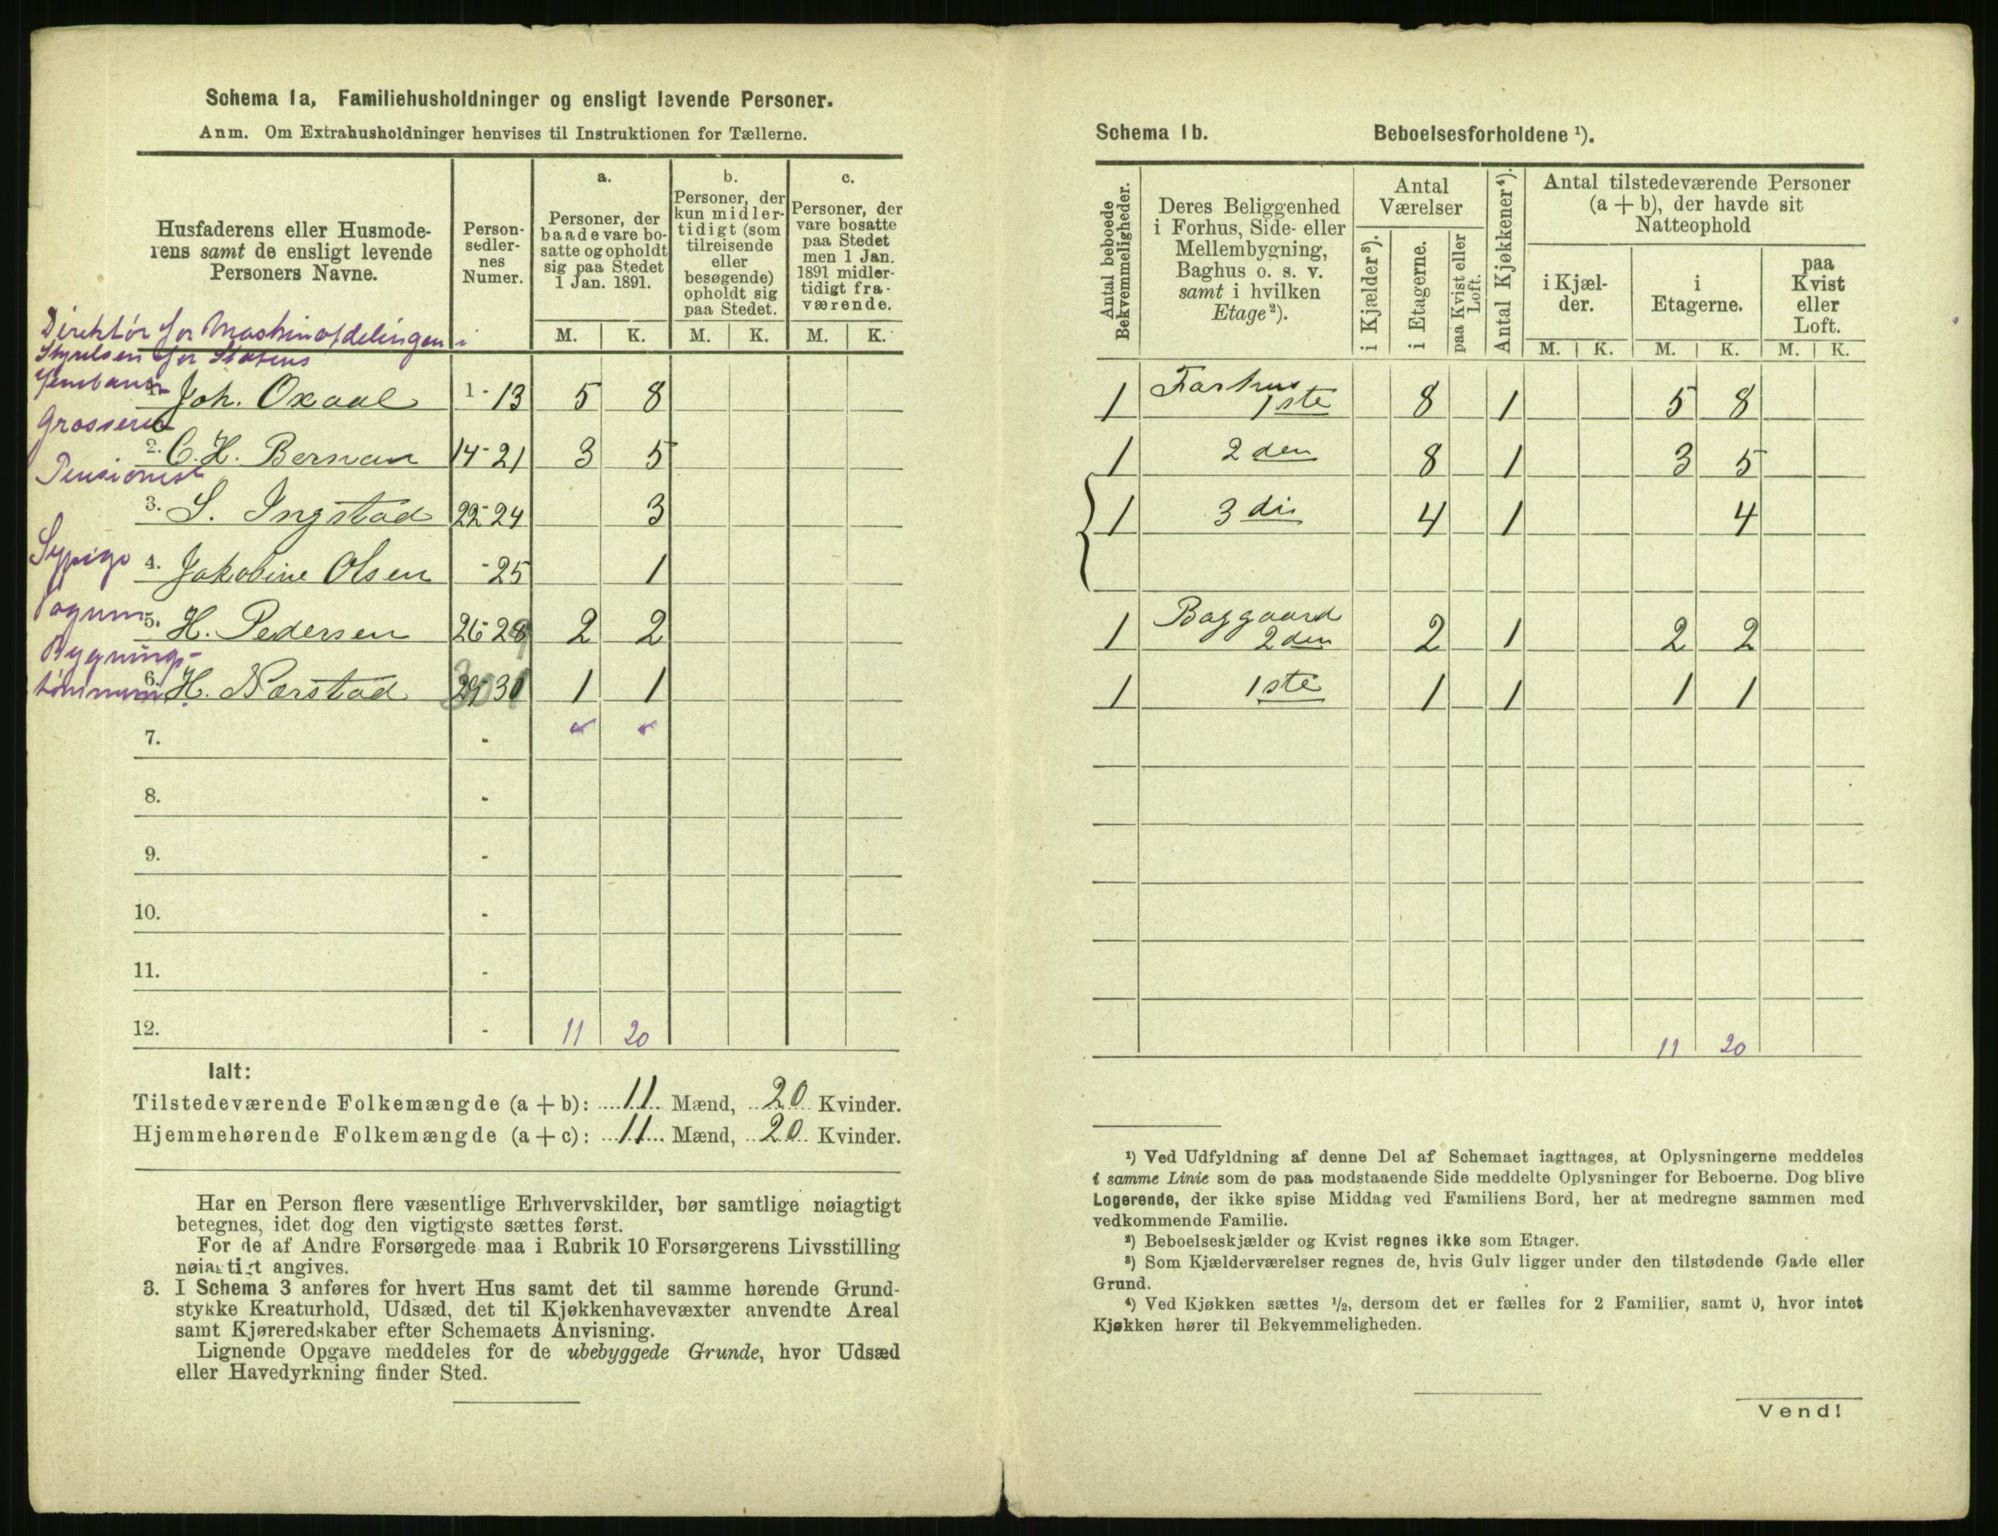 Schema 1a, Familiehusholdninger og ensligt levende Personer.
Anm. Om Extrahusholdninger henvises til Instruktionen for Tællerne.
Husfaderens eller Husmoderens samt de ensligt levende Personers Navne.
Personsedlernes Numer.
a. Personer, der baade vare bosatte og opholdt sig paa Stedet 1 Jan. 1891.
b. Personer, der kun midlertidigt (som tilreisende eller besøgende) opholdt sig paa Stedet.
c. Personer, der vare bosatte paa Stedet men 1 Jan. 1891 midlertidigt fraværende.
M. K. M. K. M. K.
Direktør for Maskinafdelingen i
Styrelsen for Statens
Jernbaner
1. Joh. Oxaal 1-13 5 8
Grosserer
2. C. H. Bernan 14-21 3 5
Pensionist
3. S. Ingstad 22-24 3
Sypige
4. Jakobine Olsen -25 1
5. H. Pedersen 26-29 2 2
Bygnings-
6. H. Nærstad 30 1 1 1
7. -
8. -
9. -
10. -
11. -
12. - 11 20
Ialt:
Tilstedeværende Folkemængde (a + b): 11 Mænd, 20 Kvinder.
Hjemmehørende Folkemængde (a + c): 11 Mænd, 20 Kvinder.
Har en Person flere væsentlige Erhvervskilder, bør samtlige nøiagtigt
betegnes, idet dog den vigtigste sættes først.
For de af Andre Forsørgede maa i Rubrik 10 Forsørgerens Livsstilling
nøiagtigt angives.
3. I Schema 3 anføres for hvert Hus samt det til samme hørende Grund-
stykke Kreaturhold, Udsæd, det til Kjøkkenhavevæxter anvendte Areal
samt Kjøreredskaber efter Schemaets Anvisning.
Lignende Opgave meddeles for de ubebyggede Grunde, hvor Udsæd
eller Havedyrkning finder Sted.
Schema 1b. Beboelsesforholdene ¹).
Antal beboede Bekvemmeligheder.
Deres Beliggenhed i Forhus, Side- eller Mellembygning, Baghus o. s. v. samt i hvilken Etage²).
Antal Værelser
i Kjælder³).
i Etagerne.
paa Kvist eller Loft.
Antal Kjøkkener⁴).
Antal tilstedeværende Personer (a + b), der havde sit Natteophold
i Kjælder.
i Etagerne.
paa Kvist eller Loft.
M. K. M. K. M. K.
1 Forhus 1ste 8 1 5 8
1 2den 8 1 3 5
1 3die 4 1 4
1 Baggaard 2den 2 1 2 2
1 1ste 1 1 1 1
11 20
¹) Ved Udfyldning af denne Del af Schemaet iagttages, at Oplysningerne meddeles
i samme Linie som de paa modstaaende Side meddelte Oplysninger for Beboerne. Dog blive
Logerende, der ikke spise Middag ved Familiens Bord, her at medregne sammen med
vedkommende Familie.
²) Beboelseskjælder og Kvist regnes ikke som Etager.
³) Som Kjælderværelser regnes de, hvis Gulv ligger under den tilstødende Gade eller
Grund.
⁴) Ved Kjøkken sættes ½, dersom det er fælles for 2 Familier, samt 0, hvor intet
Kjøkken hører til Bekvemmeligheden.
Vend!